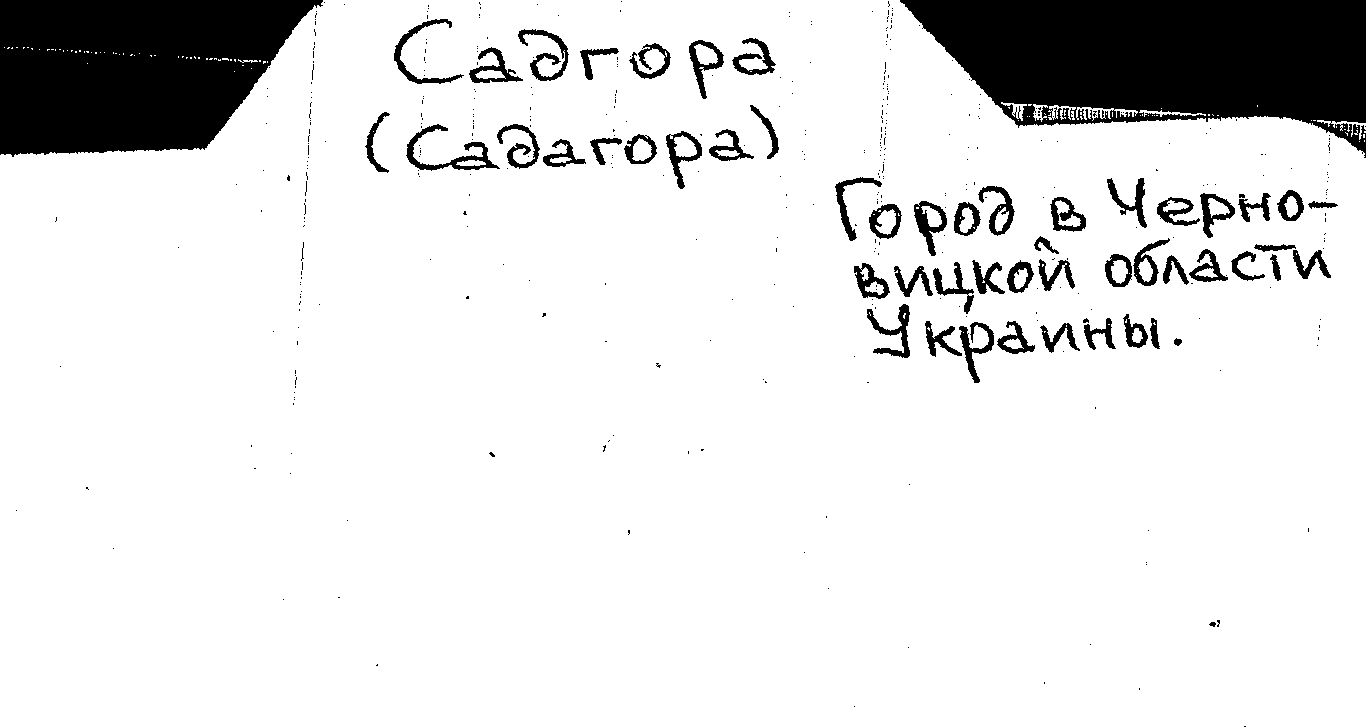 Садгора
(Садагора)
Город в Черно-
вицкой области
Украины.